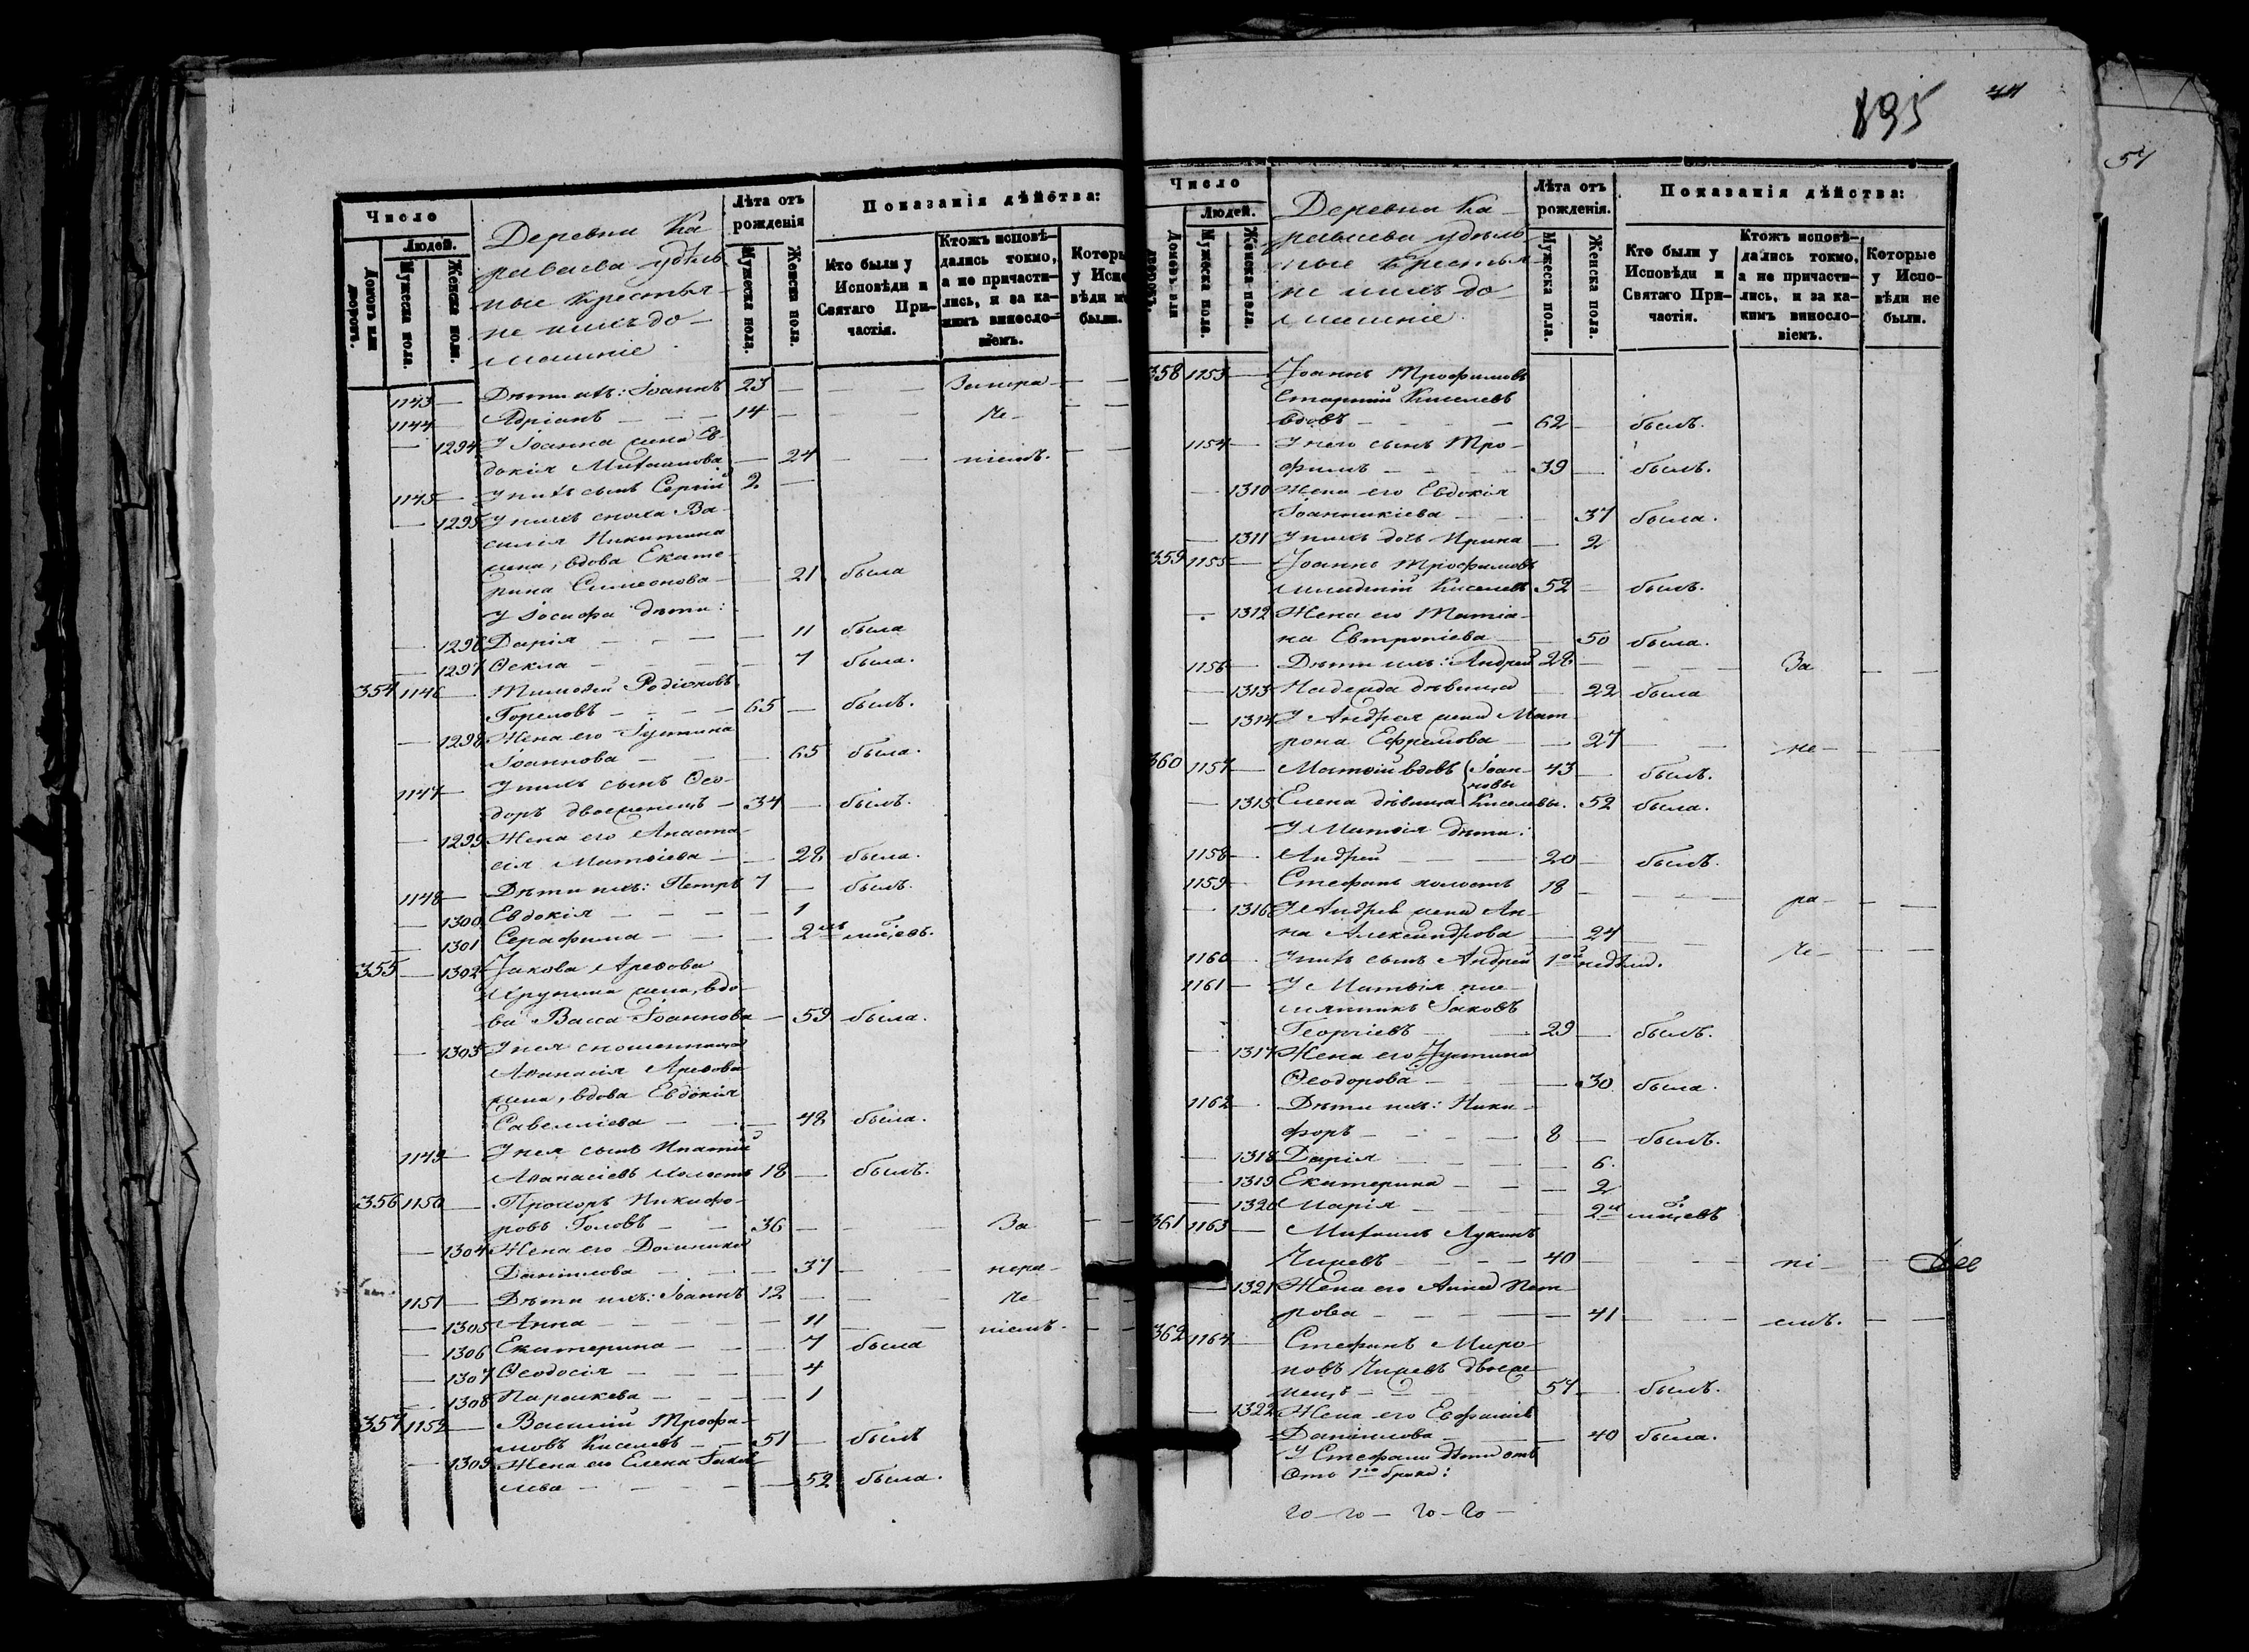 895
44
54
Число
Людей.
Домовъ или дворовъ.
Мужеска пола.
Женска пола.
Деревни Ка-
раваева удѣль-
ные крестья-
не ихъ до-
машніе
Лѣта отъ рожденія
Мужеска пола.
Женска пола.
Показанія дѣйства:
Кто были у Исповѣди и Святаго При-частія.
Ктожъ исповѣ-дались токмо, а не причасти-лись, и за ка-кимъ виносло-віемъ.
Которы у Испо вѣди н были.
1143 — Дѣти ихъ: Іоаннъ 23 — — — Занера-
1144 — Адріанъ — — 14 — — — че-
— 1294 У Іоанна жена Ев-
докія Михаилова — 24 — — ніемъ.
1145 — У нихъ сынъ Сергій 2 —
— 1295 У нихъ сноха Ва-
силія Никитина
жена, вдова Екате-
рина Симеонова — — 21 была
У Іосифа дѣти:
— 1296 Дарія — — — 11 была
— 1297 Ѳекла — — — 7 была.
354 1146 — Тимоѳей Родіоновъ
Гореловъ — — — 65 — былъ.
— 1298 Жена его Іустина
Іоаннова — — — 65 была.
1147 — У нихъ сынъ Ѳео-
доръ двоеженецъ — 34 — былъ.
— 1299 Жена его Анаста-
сія Матвіева — — 28 была.
1148 — Дѣти ихъ: Петръ 7 — былъ.
— 1300 Евдокія — — — — 1
— 1301 Серафима — — — 2хъ мѣсяцевъ.
355 — 1302 Іакова Ареѳова
жена, вдо-
ва Васса Іоаннова — 59 была.
— 1303 У нея сношенница
Аѳанасія Ареѳова
жена, вдова Евдокія
Савелліева — — — 48 была.
1149 — У нея сынъ Ипатій
Аѳанасіевъ холостъ 18 — былъ.
356 1150 — Прохоръ Никифо-
ровъ Головъ — — 36 — — — За-
— 1304 Жена его Домника
Даніилова — — — 37 — — нера-
1151 — Дѣти ихъ: Іоаннъ 12 — — — че-
— 1305 Анна — — — — 11 — — ніемъ.
— 1306 Екатерина — — — 7 была
— 1307 Ѳеодосія — — — 4
— 1308 Параскева — — — 1
357 1152 — Василій Трофи-
мовъ Киселевъ — — 51 — былъ
— 1309 Жена его Елена Іаков-
лева — — — — 52 была.
Число
Людей.
Домовъ или дворовъ.
Мужеска пола.
Женска пола.
Деревни Ка-
раваева удѣль-
ные крестья-
не ихъ до-
машніе
Лѣта отъ рожденія.
Мужеска пола.
Женска пола.
Показанія дѣйства:
Кто были у Исповѣди и Святаго При-частія.
Ктожъ исповѣ-дались токмо, а не причасти-лись, и за ка-кимъ виносло-віемъ.
Которые у Испо-вѣди не были.
358 1153 — Іоаннъ Трофимовъ
Старшій Киселевъ
вдовъ — — — — 62 — былъ.
1154 — У него сынъ Тро-
фимъ — — — — 39 — былъ.
— 1310 Жена его Евдокія
Іоанникіева — — — 37 была.
— 1311 У нихъ дочь Ирина — 2
359 1155 — Іоаннъ Трофимовъ
младшій Киселевъ 52 — былъ.
— 1312 Жена его Татіа-
на Евтропіева — — 50 была.
1156 — Дѣти ихъ: Андрей 28 — — — За
— 1313 Надежда дѣвица — 22 была
— 1314 У Андрея жена Мат-
рона Ефремова — — 27 — — не-
360 1157 — Матвій вдовъ Іоан-новы 43 — былъ.
— 1315 Елена дѣвица Киселевы. 52 была.
У Матвія дѣти:
1158 — Андрей — — — 20 — былъ.
1159 — Стефанъ холостъ 18 — — — ра-
— 1316 У Андрея жена Ан-
на Александрова — 24 — —
1160 — У нихъ сынъ Андрей 1ой недѣли. че-
1161 — У Матвія пле-
мянникъ Іаковъ
Георгіевъ — — 29 — былъ.
— 1317 Жена его Іустина
Ѳеодорова — — — 30 была.
1162 — Дѣти ихъ: Ники-
форъ — — — — 8 — былъ.
— 1318 Дарія — — — 6.
— 1319 Екатерина — — — 2
— 1320 Марія — — — 2хъ мѣсяцевъ
361 1163 — Михаилъ Лукинъ
Чижевъ — — — 40 — — — ні- —
— 1321 Жена его Анна Пет-
рова — — — — 41 — — емъ. — —
362 1164 — Стефанъ Миро-
новъ Чижевъ двоеже-
нецъ — — — 57 — былъ.
— 1322 Жена его Евфимія
Даніилова — — — 40 была.
У Стефана дѣти отъ
Отъ 1го брака: